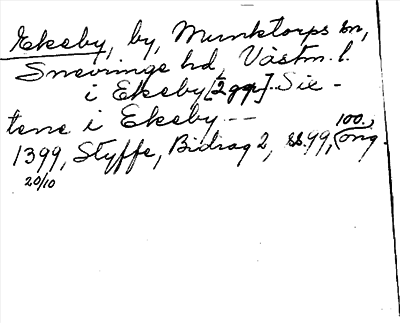 Ekeby, by, Munktorps sn,
Snevringe hd, Västm. l.
i Ekeby [2 ggr]. Sie-
tene i Ekeby --
1399, Styffe, Bidrag 2, ss. 99, 100., orig.
20/10